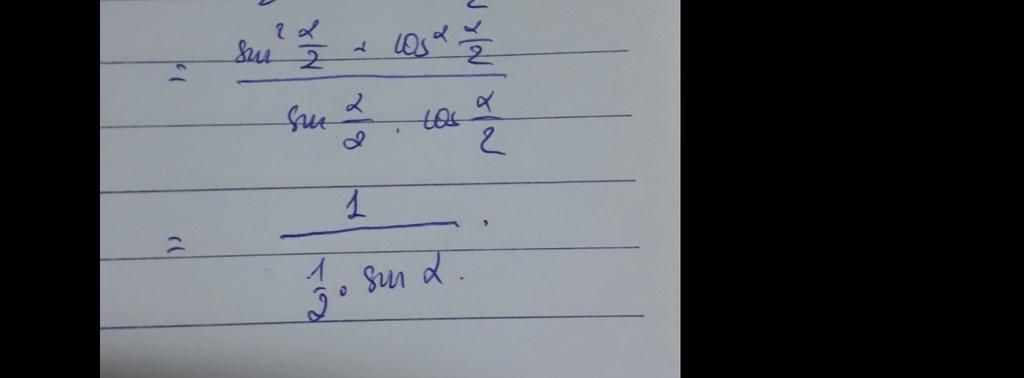 = (sin² α/2 + cos² α/2) / (sin α/2 . cos α/2)
= 1 / (1/2 . sin α) .